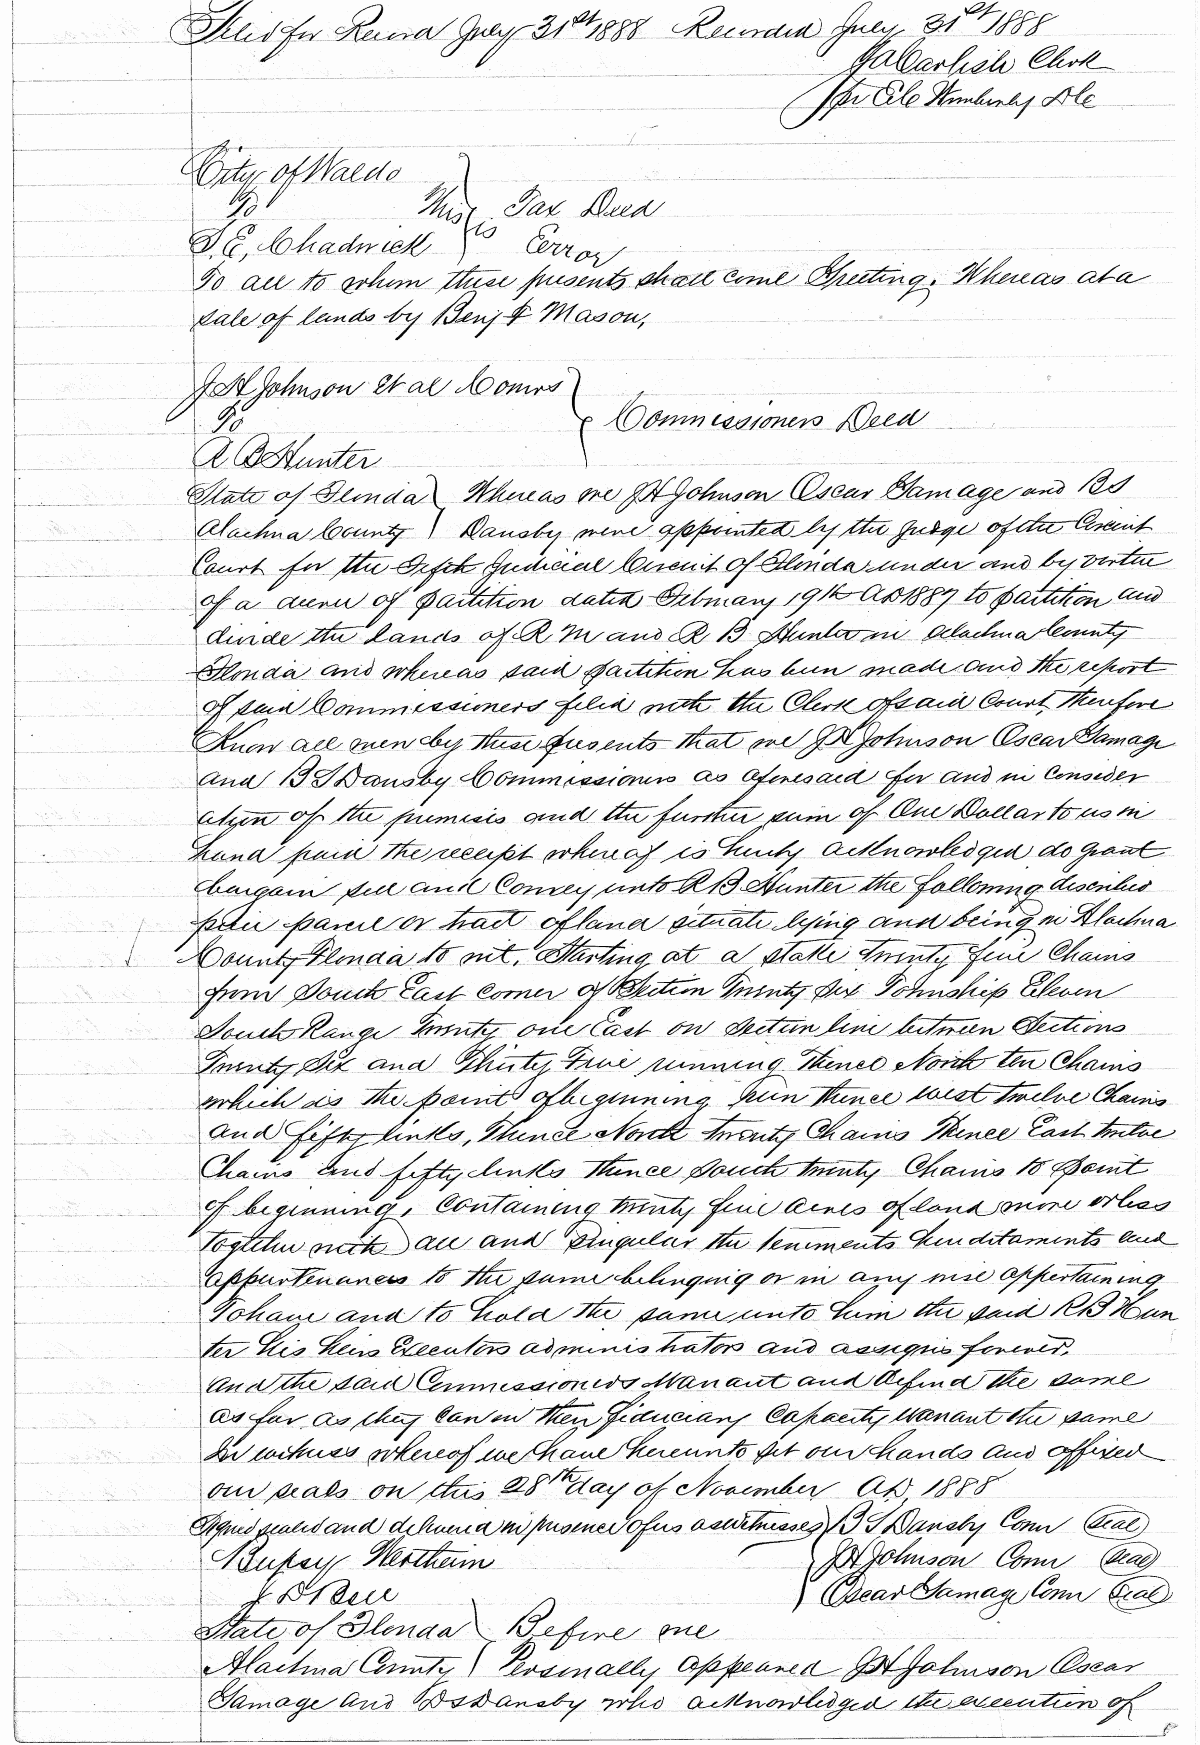 Filed for Record July 31st 1888 Recorded July 31st 1888
J A Carlisle Clerk
Per
City of Waldo
To This Tax Deed
is
T. E. Chadwick Error
To all to whom these presents shall come Greeting. Whereas at a
sale of lands by Benj F Mason,
J H Johnson et al Comrs
To Commissioners Deed
R B Hunter
State of Florida Whereas we J H Johnson Oscar Gamage and B S
Alachua County Dansby were appointed by the Judge of the Circuit
Court for the Fifth Judicial Circuit of Florida under and by virtue
of a decree of partition dated February 19th AD 1887 to partition and
divide the lands of R M and R B Hunter in Alachua County
Florida and whereas said partition has been made and the report
of said Commissioners filed with the Clerk of said Court, Therefore
Know all men by these presents that we J H Johnson Oscar Gamage
and B S Dansby Commissioners as aforesaid for and in Consider
ation of the premises and the further sum of One Dollar to us in
hand paid the receipt whereof is hereby acknowledged do grant
bargain sell and Convey unto R B Hunter the following described
parcel or tract of land situate lying and being in Alachua
County Florida to wit. Starting at a stake twenty five Chains
from South East corner of Section Twenty Six Township Eleven
South Range Twenty one East on Section line between Sections
Twenty Six and Thirty Five running Thence North ten Chains
which is the point of beginning run thence west twelve Chains
and fifty links, Thence North twenty Chains Thence East twelve
Chains and fifty links thence South twenty Chains to point
of beginning, Containing twenty five acres of land more or less
together with all and singular the tenements hereditaments and
appurtenances to the same belonging or in any wise appertaining
To have and to hold the same unto him the said R B Hun
ter his heirs Executors administrators and assigns forever.
And the said Commissioners Warrant and defend the same
as far as they can in their fiduciary Capacity Warrant the same
In witness whereof we have hereunto set our hands and affixed
our seals on this 28th day of November AD 1888
Signed sealed and delivered in presence of us as witnesses B S Dansby Comr (Seal)
Wertheim J H Johnson Comr (Seal)
Oscar Gamage Comr (Seal)
State of Florida Before me
Alachua County Personally appeared J H Johnson Oscar
Gamage and B S Dansby who acknowledged the execution of